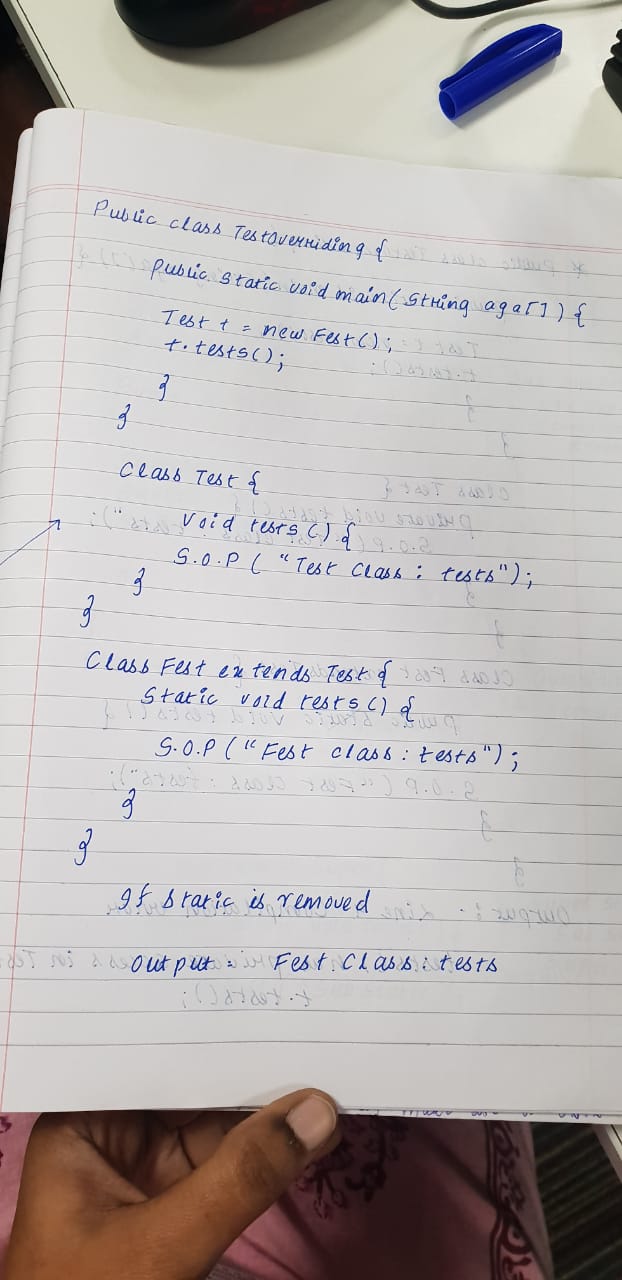 Public class TestOverriding {
Public static void main(String aga[]) {
Test t = new Fest();
t.tests();
}
}
Class Test {
Void tests() {
S.O.P ( "Test Class : tests");
}
}
Class Fest extends Test {
Static void tests() {
S.O.P ("Fest class : tests");
}
}
If static is removed
Output : Fest Class : tests